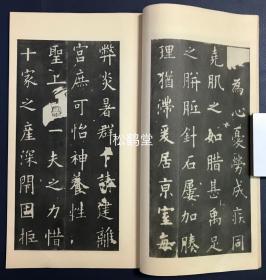 為心憂勞成疾同
堯肌之如腊甚禹足
之胼胝針石屢加腠
理猶滯爰居京室每
弊炎暑群下請建離
宮庶可怡神養性
聖上一夫之力惜
十家之產深閉固拒
松鹤堂